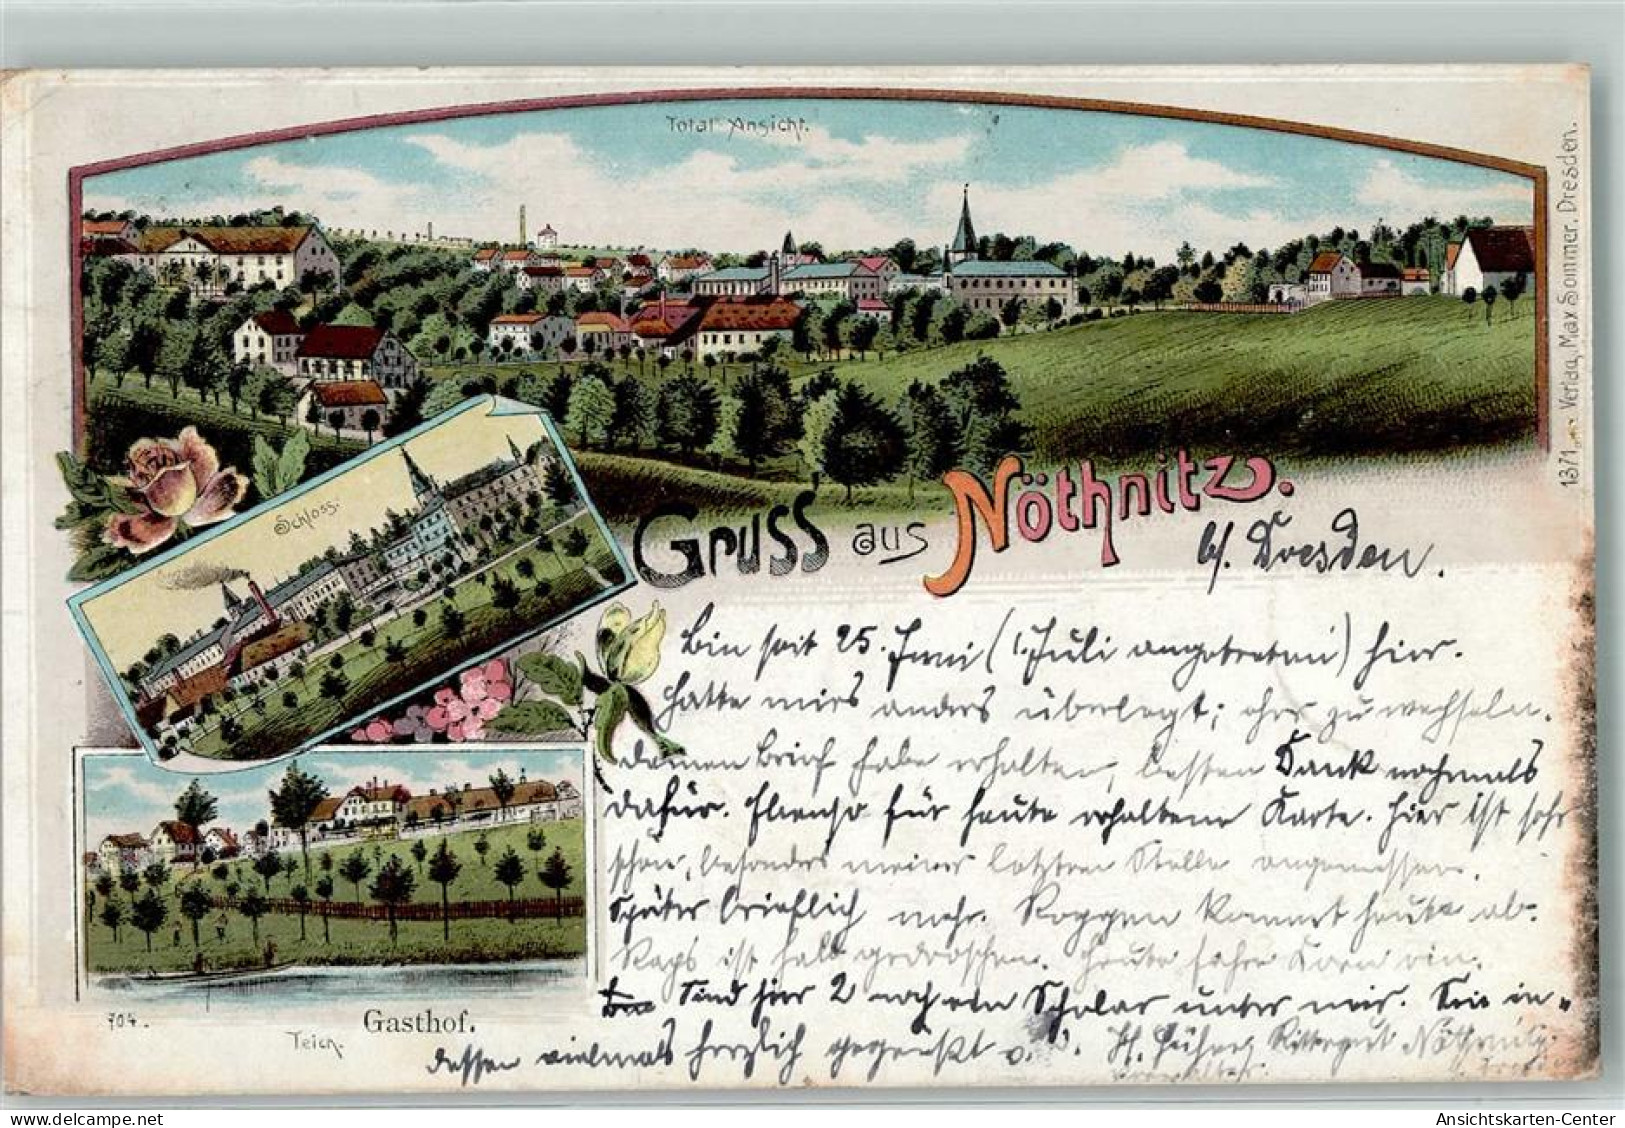 Total Ansicht.
1371 Verlag, Max Sommer, Dresden.
Schloss.
Gruss aus Nöthnitz.
b/. Dresden.
Bin seit 25. Juni (1. Juli angetreten) hier.
Hatte mirs anders überlegt; ehe zu wechseln.
Deinen Brief habe erhalten, besten Dank nochmals
dafür. Ebenso für heute erhaltene Karte. Hier ist sehr
schön, besonders meiner letzten Stelle angemessen.
Später brieflich mehr. Roggen kommt heute ab.
Raps ist halb gedroschen. Heute fahre Korn ein.
Sind hier 2 noch ein Scholar unter mir. Sei in-
dessen vielmals herzlich gegrüßt v. Rittergut Nöthnitz
Verwalter.
704.
Gasthof.
Teich.
Ansichtskarten-Center
www.delcampe.net